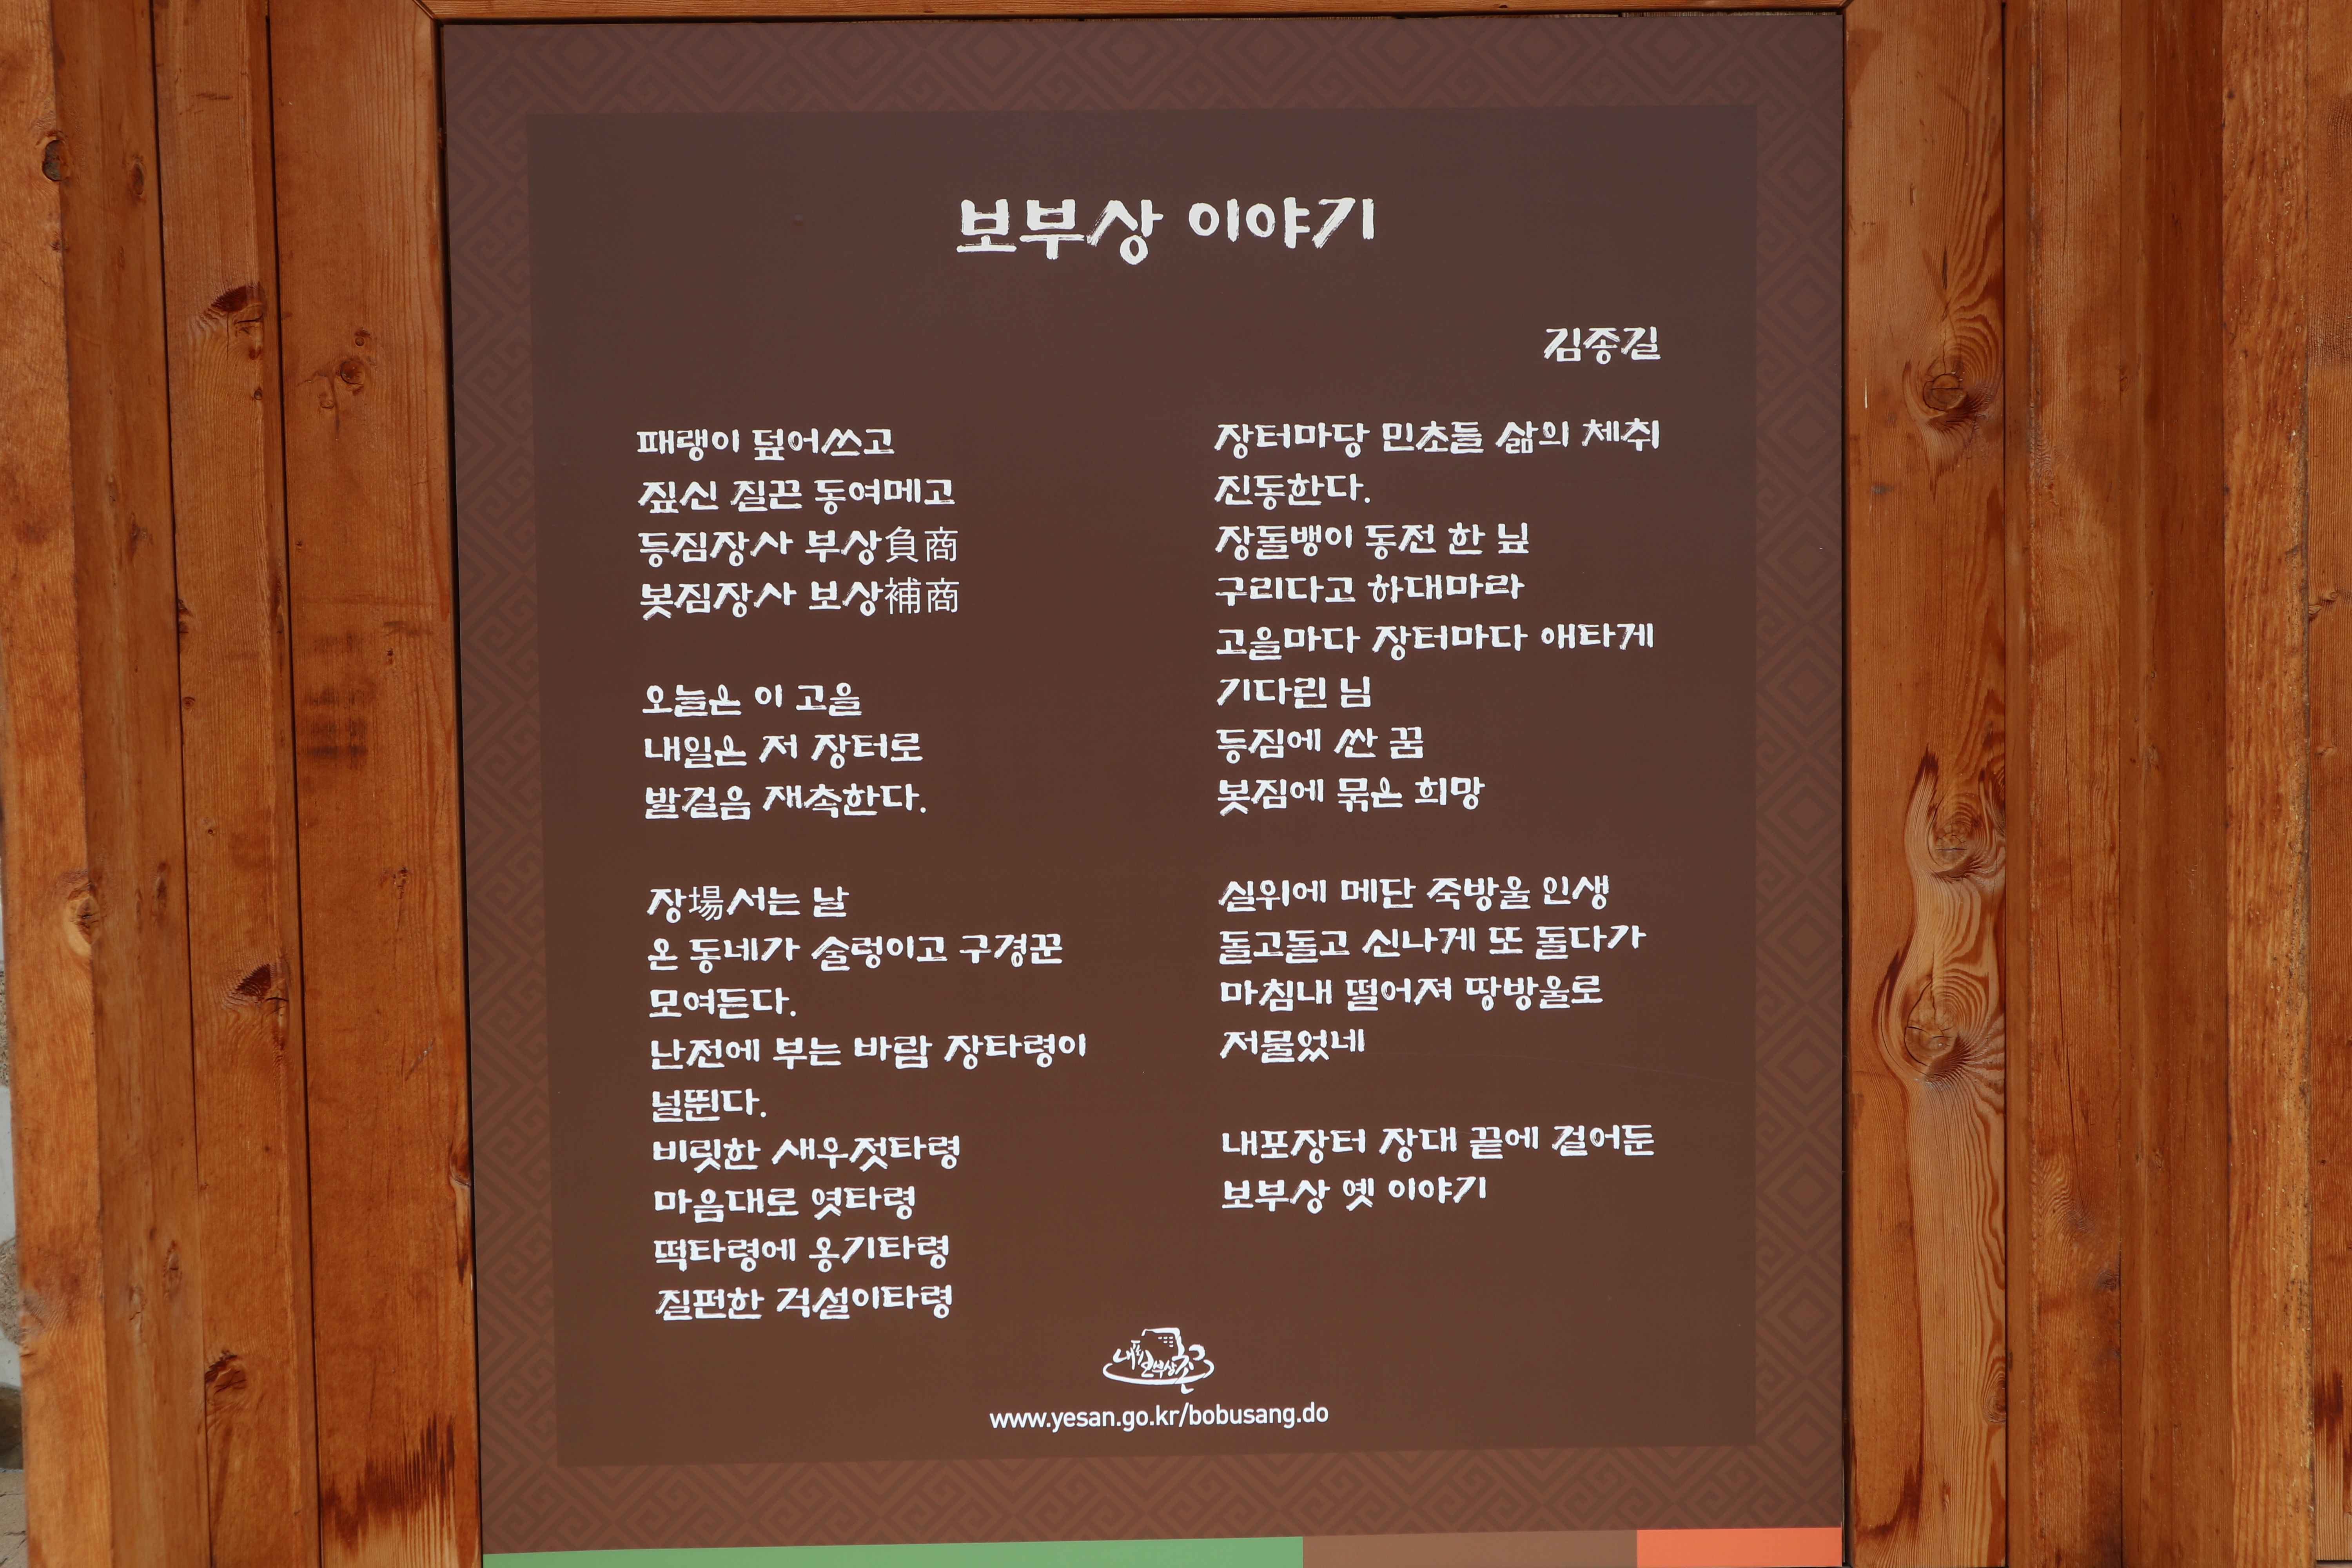 보부상 이야기
김종길
패랭이 덮어쓰고
짚신 질끈 동여메고
등짐장사 부상負商
봇짐장사 보상補商
오늘은 이 고을
내일은 저 장터로
발걸음 재촉한다.
장場서는 날
온 동네가 술렁이고 구경꾼
모여든다.
난전에 부는 바람 장타령이
널뛴다.
비릿한 새우젓타령
마음대로 엿타령
떡타령에 옹기타령
질펀한 걱설이타령
장터마당 민초들 삶의 체취
진동한다.
장돌뱅이 동전 한 닢
구리다고 하대마라
고을마다 장터마다 애타게
기다린 님
등짐에 싼 꿈
봇짐에 묶은 희망
실위에 메단 죽방울 인생
돌고돌고 신나게 또 돌다가
마침내 떨어져 땅방울로
저물었네
내포장터 장대 끝에 걸어둔
보부상 옛 이야기
내포보부상촌
www.yesan.go.kr/bobusang.do